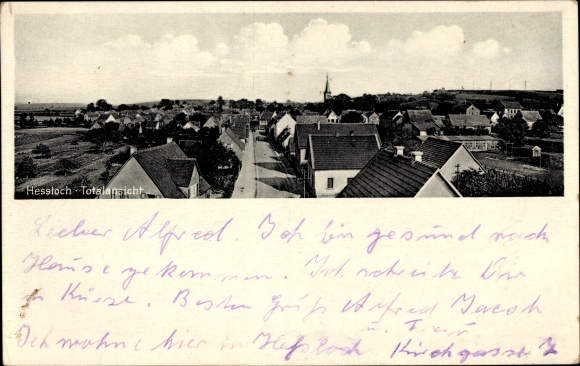 Hessloch · Totalansicht
Lieber Alfred. Ich bin gesund nach
Hause gekommen. Ich schreibe Dir
in Kürze. Besten Gruß Alfred Jacob
u. Frau
Ich wohne hier in Heßloch Kirchgasse 7